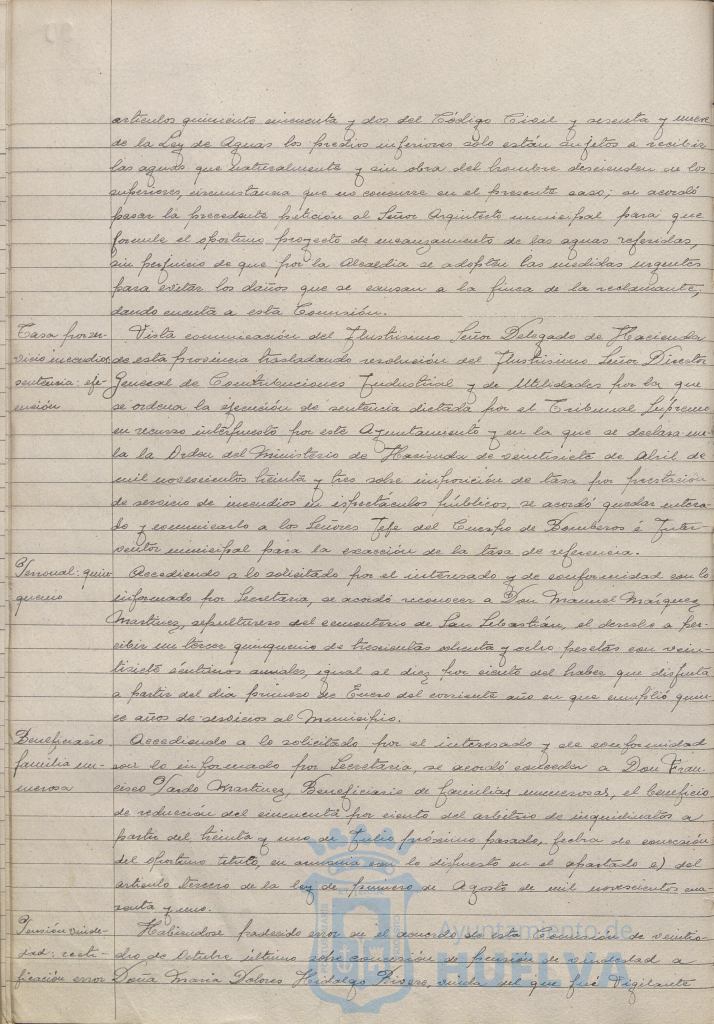 artículos quinientos cincuenta y dos del Código Civil y sesenta y nueve
de la Ley de Aguas los predios inferiores solo están sujetos a recibir
las aguas que naturalmente y sin obra del hombre descienden de los
superiores, circunstancia que no concurre en el presente caso; se acordó
pasar la precedente petición al Señor Arquitecto municipal para que
formule el oportuno proyecto de encauzamiento de las aguas referidas,
sin perjuicio de que por la Alcaldía se adopten las medidas urgentes
para evitar los daños que se causan a la finca de la reclamante,
dando cuenta a esta Comisión.
Tasa por ser-
vicio incendios
sentencia: eje-
cución
Vista comunicación del Ilustrísimo Señor Delegado de Hacienda
de esta provincia trasladando resolución del Ilustrísimo Señor Director
General de Contribuciones Industrial y de Utilidades por la que
se ordena la ejecución de sentencia dictada por el Tribunal Supremo
en recurso interpuesto por este Ayuntamiento y en la que se declara nu-
la la Orden del Ministerio de Hacienda de veintisiete de Abril de
mil novecientos treinta y tres sobre imposición de tasa por prestación
de servicio de incendios en espectáculos públicos, se acordó quedar entera-
do y comunicarlo a los Señores Jefe del Cuerpo de Bomberos é Inter-
ventor municipal para la exacción de la tasa de referencia.
Personal: quin-
quenio
Accediendo a lo solicitado por el interesado y de conformidad con lo
informado por Secretaría, se acordó reconocer a Don Manuel Márquez
Martínez, sepulturero del cementerio de San Sebastián, el derecho a per-
cibir un tercer quinquenio de trescientas ochenta y ocho pesetas con vein-
tisiete céntimos anuales, igual al diez por ciento del haber que disfruta
a partir del día primero de Enero del corriente año en que cumplió quin-
ce años de servicios al Municipio.
Beneficiario
familia nu-
merosa
Accediendo a lo solicitado por el interesado y de conformidad
con lo informado por Secretaría, se acordó conceder a Don Fran-
cisco Pardo Martínez, Beneficiario de familias numerosas, el beneficio
de reducción del cincuenta por ciento del arbitrio de inquilinatos a
partir del treinta y uno de Julio próximo pasado, fecha de concesión
del oportuno título, en armonía con lo dispuesto en el apartado e) del
artículo tercero de la ley de primero de Agosto de mil novecientos cua-
renta y uno.
Pensión viude-
dad: recti-
ficación error
Habiéndose padecido error en el acuerdo de esta Comisión de veintio-
cho de Octubre último sobre concesión de pensión de viudedad a
Doña María Dolores Hidalgo Rivero, viuda del que fué Vigilante
Ayuntamiento de
HUELVA